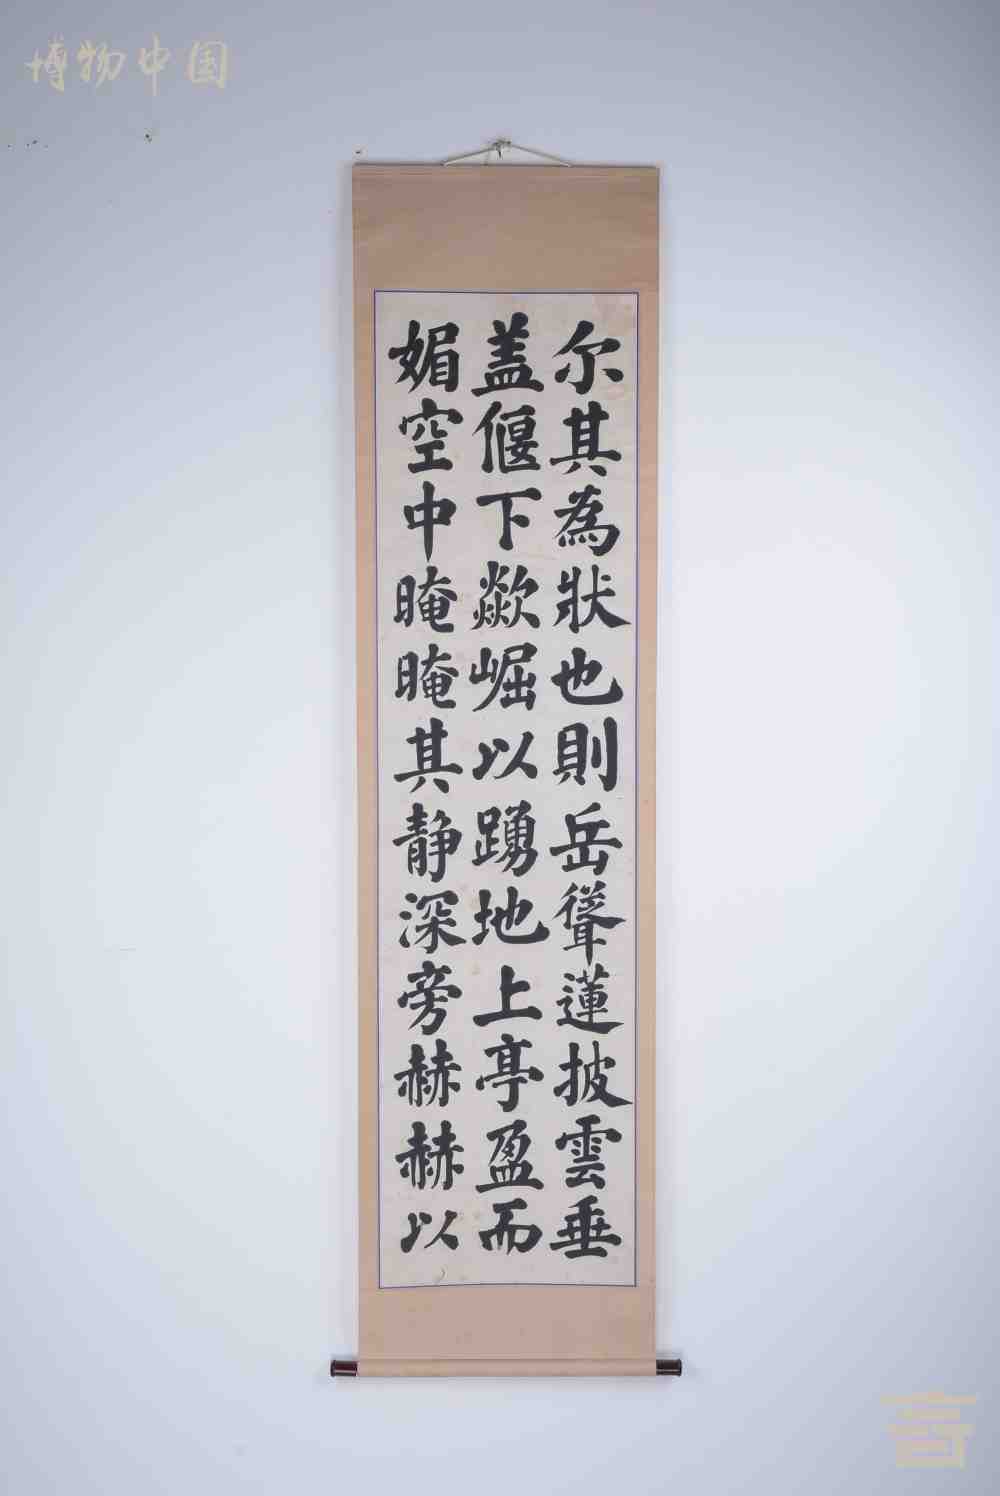 博物中国
尔其為狀也則岳聳蓮披雲垂
盖偃下歘崛以踴地上亭盈而
媚空中晻晻其静深旁赫赫以